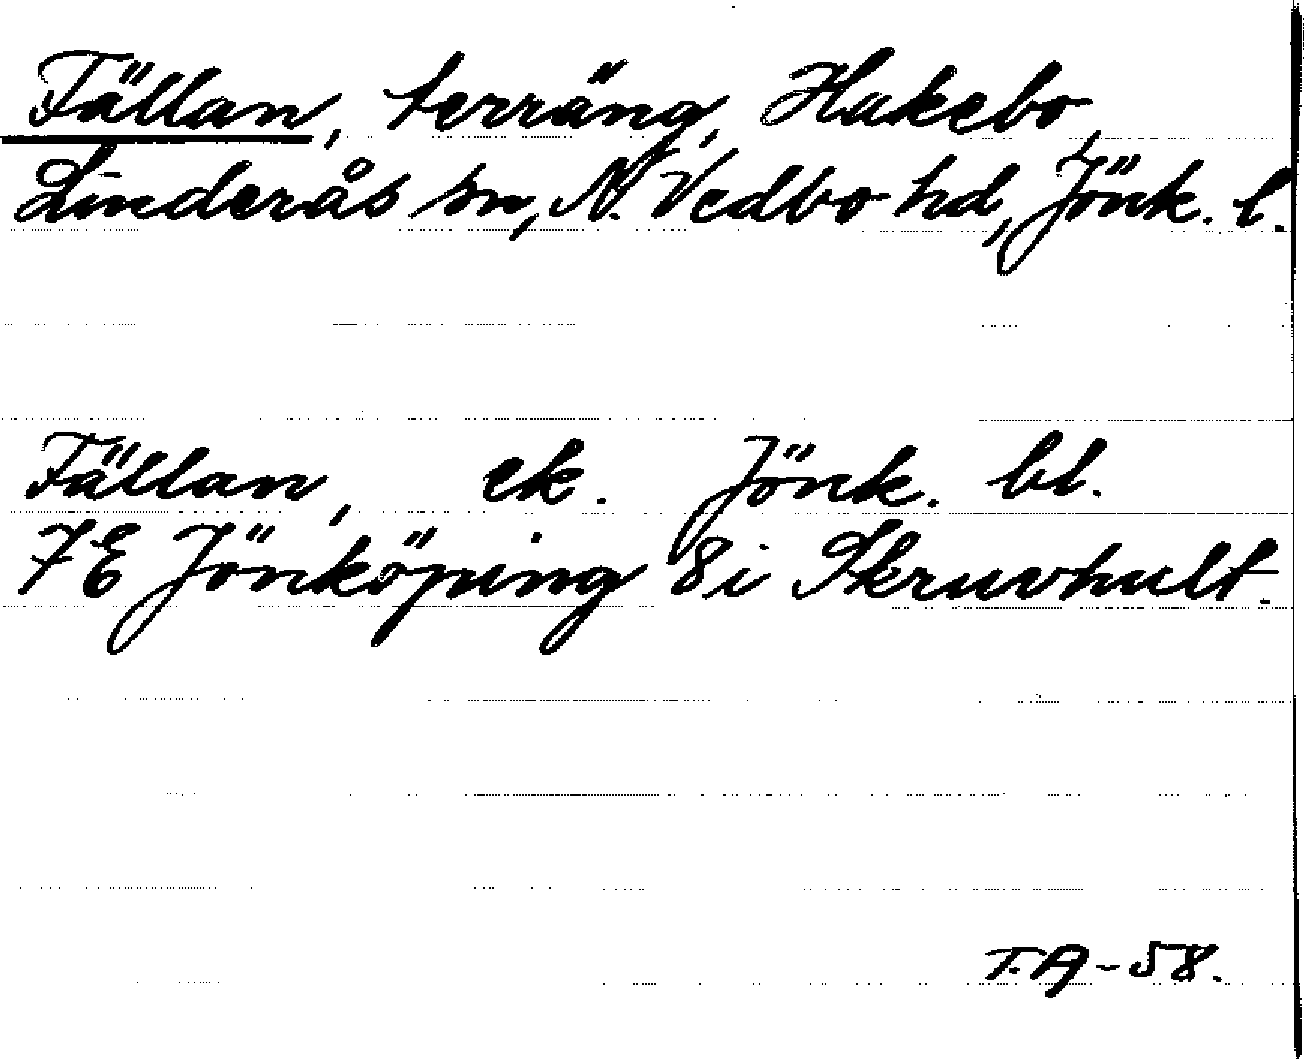 Fällan, terräng, Hakebo,
Linderås sn, N. Vedbo hd, Jönk. l.
Fällan, ek. Jönk. bl.
7E Jönköping 8i Skruvhult.
T.A-58.